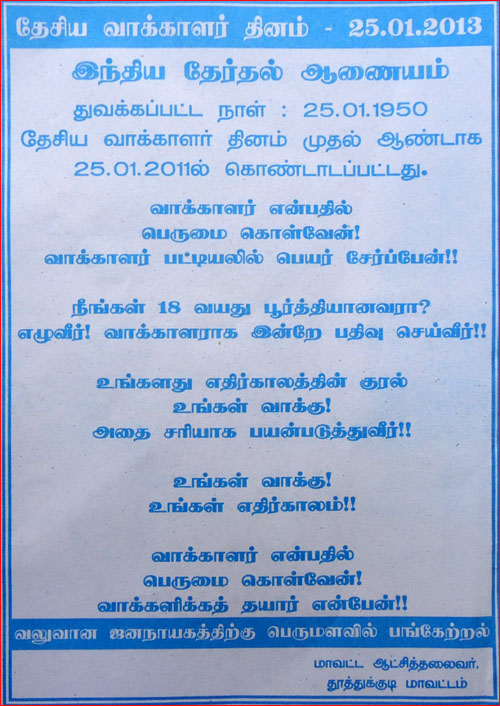 தேசிய வாக்காளர் தினம் - 25.01.2013
இந்திய தேர்தல் ஆணையம்
துவக்கப்பட்ட நாள் : 25.01.1950
தேசிய வாக்காளர் தினம் முதல் ஆண்டாக
25.01.2011ல் கொண்டாடப்பட்டது.
வாக்காளர் என்பதில்
பெருமை கொள்வேன்!
வாக்காளர் பட்டியலில் பெயர் சேர்ப்பேன்!!
நீங்கள் 18 வயது பூர்த்தியானவரா?
எழுவீர்! வாக்காளராக இன்றே பதிவு செய்வீர்!!
உங்களது எதிர்காலத்தின் குரல்
உங்கள் வாக்கு!
அதை சரியாக பயன்படுத்துவீர்!!
உங்கள் வாக்கு!
உங்கள் எதிர்காலம்!!
வாக்காளர் என்பதில்
பெருமை கொள்வேன்!
வாக்களிக்கத் தயார் என்பேன்!!
வலுவான ஜனநாயகத்திற்கு பெருமளவில் பங்கேற்றல்
மாவட்ட ஆட்சித்தலைவர்.
தூத்துக்குடி மாவட்டம்